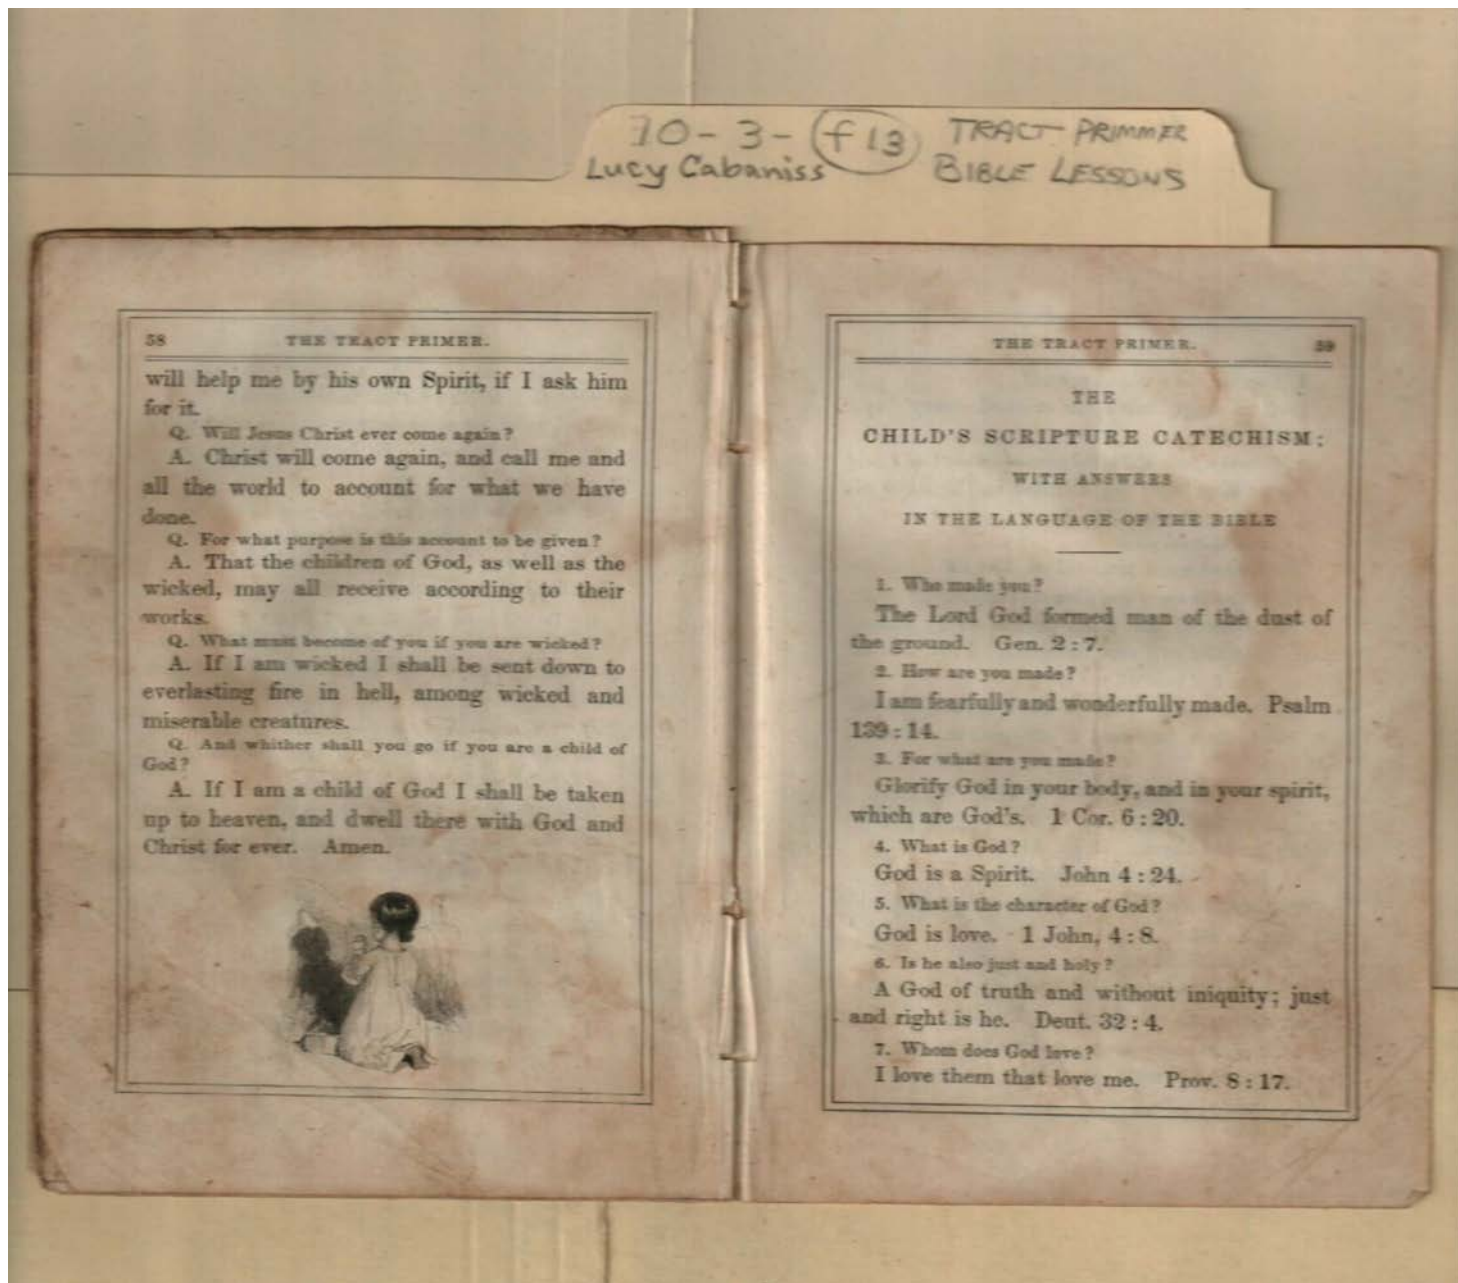 10-3-f13 TRACT PRIMMER
Lucy Cabaniss BIBLE LESSONS
58 THE TRACT PRIMER.
will help me by his own Spirit, if I ask him
for it.
Q. Will Jesus Christ ever come again?
A. Christ will come again, and call me and
all the world to account for what we have
done.
Q. For what purpose is this account to be given?
A. That the children of God, as well as the
wicked, may all receive according to their
works.
Q. What must become of you if you are wicked?
A. If I am wicked I shall be sent down to
everlasting fire in hell, among wicked and
miserable creatures.
Q. And whither shall you go if you are a child of
God?
A. If I am a child of God I shall be taken
up to heaven, and dwell there with God and
Christ for ever. Amen.
THE TRACT PRIMER. 59
THE
CHILD'S SCRIPTURE CATECHISM:
WITH ANSWERS
IN THE LANGUAGE OF THE BIBLE
1. Who made you?
The Lord God formed man of the dust of
the ground. Gen. 2:7.
2. How are you made?
I am fearfully and wonderfully made. Psalm
139:14.
3. For what are you made?
Glorify God in your body, and in your spirit,
which are God's. 1 Cor. 6:20.
4. What is God?
God is a Spirit. John 4:24.
5. What is the character of God?
God is love. 1 John, 4:8.
6. Is he also just and holy?
A God of truth and without iniquity; just
and right is he. Deut. 32:4.
7. Whom does God love?
I love them that love me. Prov. 8:17.